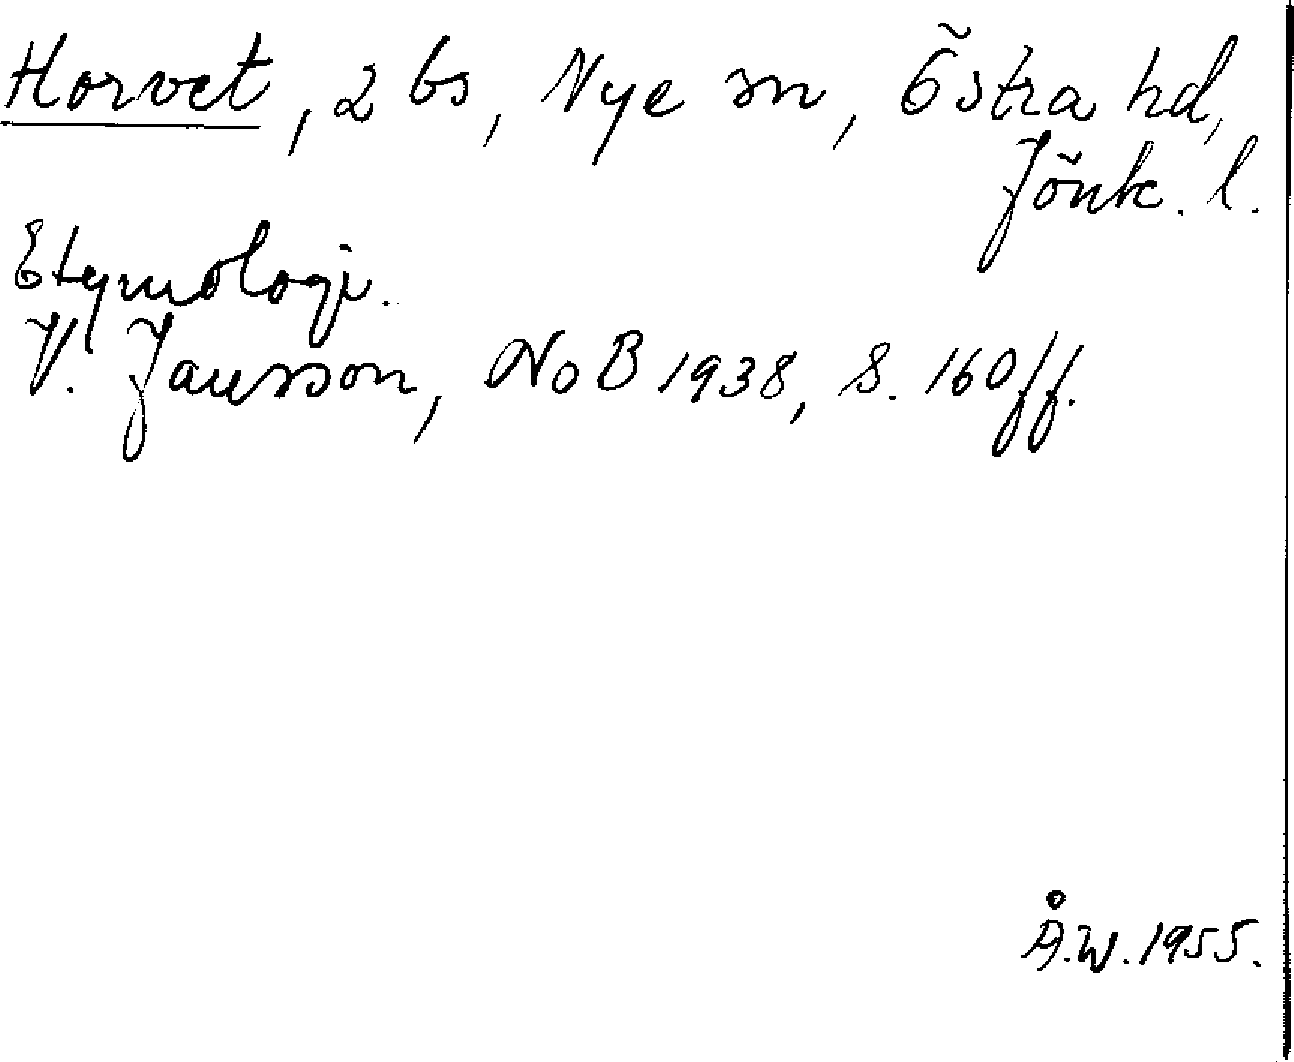 Horvet, 2 bs, Nye sn, Östra hd,
Jönk. l.
Etymologi.
V. Jansson, NoB 1938, s. 160 ff.
Å.W. 1955.